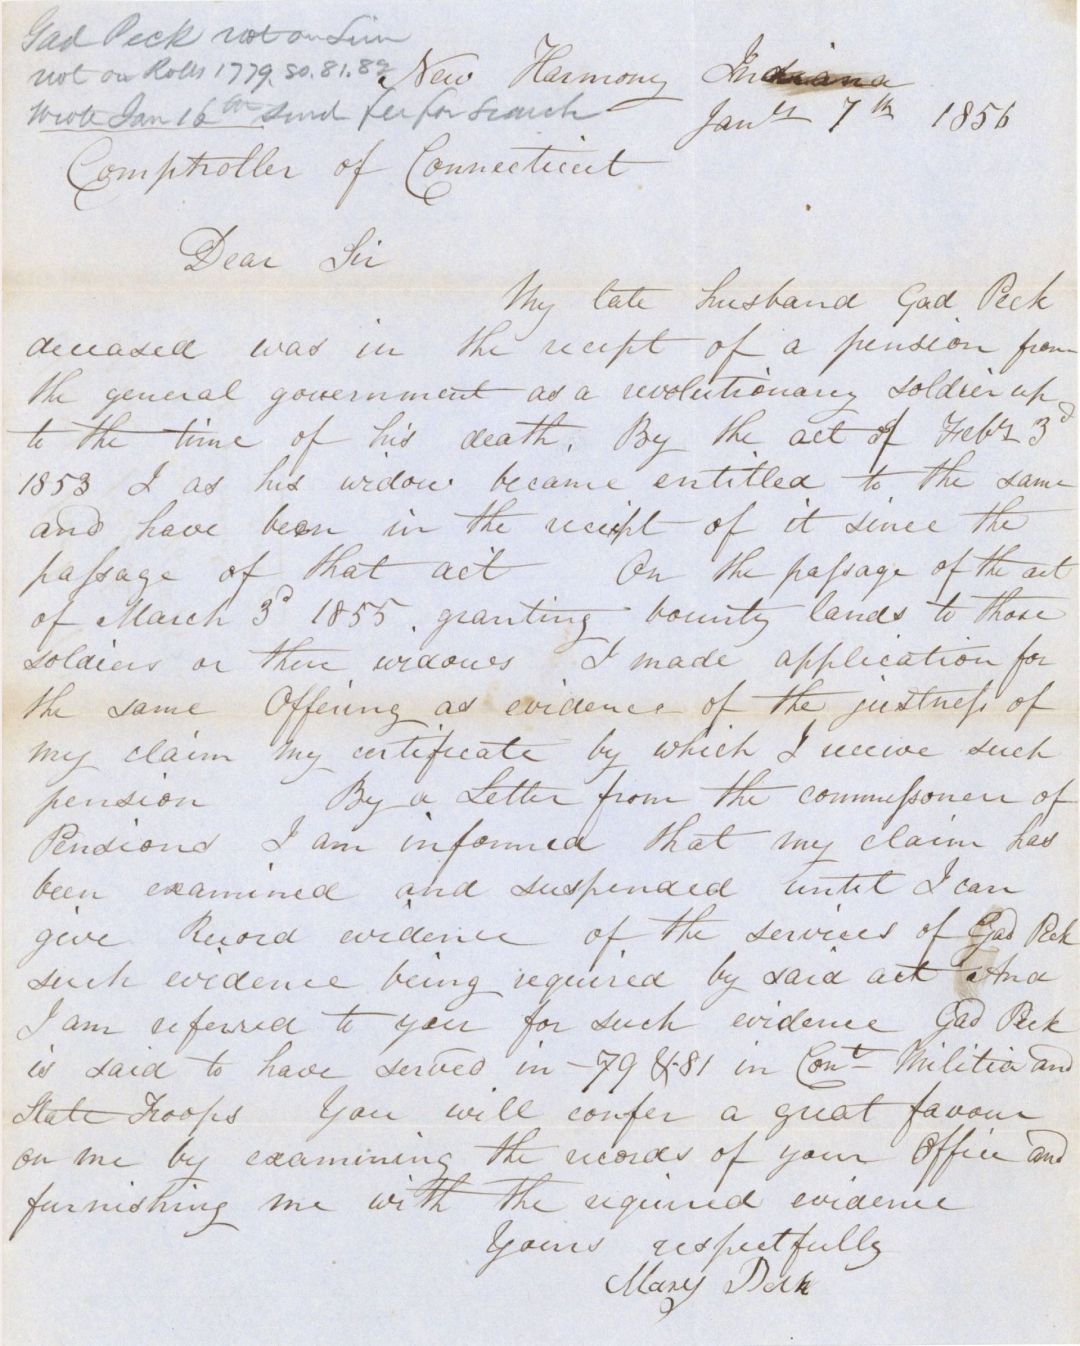 Gad Peck not on
not on Rolls 1779. 80. 81. 82
Wrote Jan 16th send fee for search
New Harmony Indiana
Jany 7th 1856
Comptroller of Connecticut
Dear Sir
My late husband Gad Peck
deceased was in the receipt of a pension from
the general government as a revolutionary soldier up
to the time of his death. By the act of Feby 3d
1853 I as his widow became entitled to the same
and have been in the receipt of it since the
passage of that act On the passage of the act
of March 3d 1855 granting bounty lands to those
soldiers or their widows I made application for
the same Offering as evidence of the justness of
my claim my certificate by which I receive such
pension By a Letter from the commissoner of
Pensions I am informed that my claim has
been examined and suspended until I can
give Record evidence of the services of Gad Peck
such evidence being required by said act And
I am referred to you for such evidence Gad Peck
is said to have served in -79 & -81 in Cont Militia and
State Troops You will confer a great favour
on me by examining the records of your Office and
furnishing me with the required evidence
Yours respectfully
Mary Peck